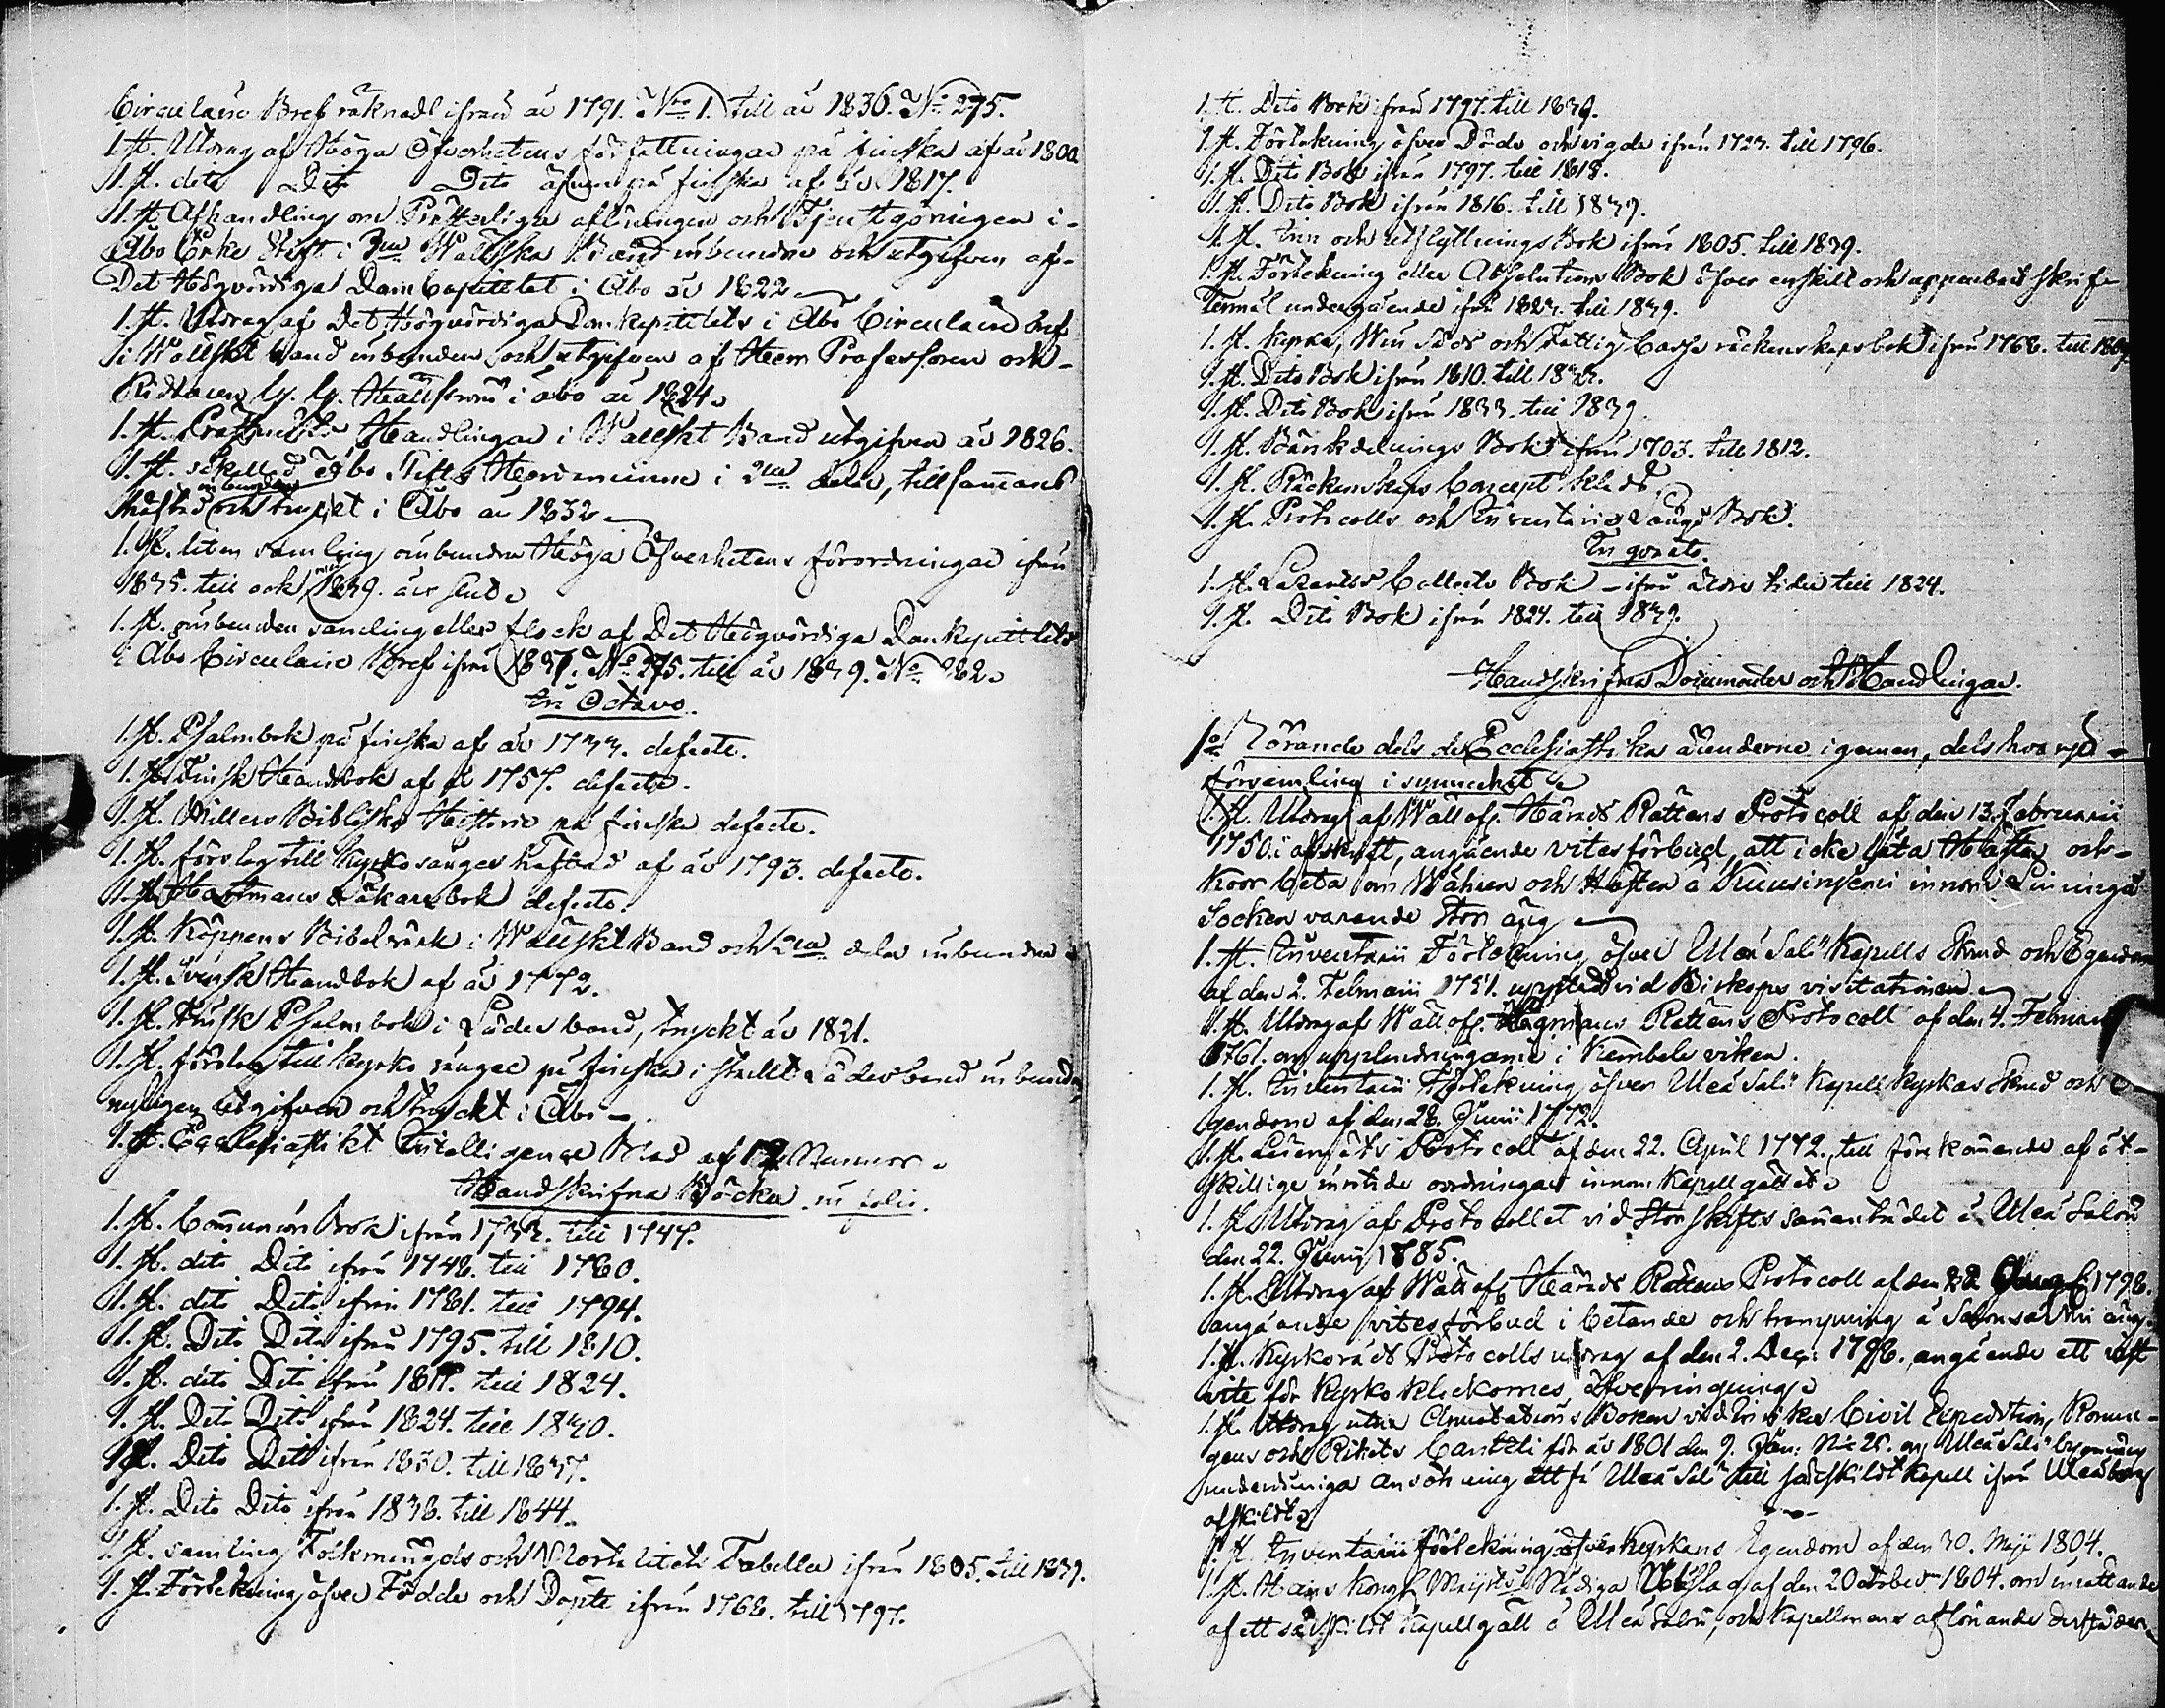 Circulaire Bref räknadt ifrån år 1791. Nro 1. till år 1836. No 275.
1. st. Utdrag af Höga Öfverhetens författningar på finska af år 1800
1. st. dito Dito Dito äfven på finska af år 1817.
1. st. Afhandling om Prästerliga aflöningen och Tjenstgöringen i
Åbo Erke Stift i Wällska Band inbunden och utgifven af
Det Högvördiga Dom Capitlet i Åbo år 1822
1. st. Utdrag af Det Högvördiga Dom kapitlets i Åbo Circulaire bref
i Wällskt band inbunden och utgifven af Herr Professoren och
Riddaren G. G. Hällström i åbo år 1824.
1. st. Handlingar i Wällskt Band utgifven år 1826.
1. st. Åbo Stifts Herdeminne i delar, tillsammans
inbunden
häftad och tryckt i Åbo år 1832
1. st. liten samling oinbundna Höga Öfverhetens förordningar ifrån
1835. till och med 1839. års slut.
1. st. oinbunden samling eller flock af Det Högvördiga Domkapitlets
i Åbo Circulaire Bref ifrån 1837. No 275. till år 1839. No 282.
In Octavo.
1. st. Psalmbok på finska af år 1733. defecte.
1. st. Finsk Handbok af år 1757. defecte.
1. st. Hillers Bibliska Historie på finska defecte.
1. st. förslag till Kyrko sånger häftad af år 1793. defecte.
1. st. Hartmans Läkarebok defecte.
1. st. Köppens Bibelverk i Wällskt Band och delar inbundna
1. st. Svensk Handbok af år 1772.
1. st. Finsk Psalmbok i Läder band, tryckt år 1821.
1. st. förslag till kyrko sånger på finska i Läderband inbunden
nyligen utgifven och tryckt i Åbo
1. st. Ecclesiastikt Intelligence Blad af 12 Numror.
Handskrifna Böcker in folio.
1. st. Communion Bok ifrån 1733. till 1747.
1. st. dito Dito ifrån 1748. till 1780.
1. st. dito Dito ifrån 1781. till 1794.
1. st. Dito Dito ifrån 1795. till 1810.
1. st. dito Dito ifrån 1811. till 1824.
1. st. Dito Dito ifrån 1824. till 1830.
1. st. Dito Dito ifrån 1830. till 1837.
1. st. Dito Dito ifrån 1838. till 1844.
1. st. samling Folkmängds och Mortalitets Tabeller ifrån 1805. till 1839.
1. st. Förtekning öfver Födde och Döpte ifrån 1768. till 1797.
1. st. Dito Bok ifrån 1797. till 1839.
1. st. Förtekning öfver Döde och vigde ifrån 1723. till 1796.
1. st. Dito Bok ifrån 1797. till 1818.
1. st. Dito Bok ifrån 1816. till 1839.
1. st. In och utflyttnings Bok ifrån 1805. till 1839.
1. st. Förtekning eller Absolutions Bok öfver enskilt och uppenbart skrif-
termål undergående ifrån 1823. till 1839.
1. st. Kyrko, Win säds och Fattig Cassa räckenskaps bok ifrån 1768. till 1809
1. st. Dito Bok ifrån 1810. till 1832.
1. st. Dito Bok ifrån 1833. till 1839
1. st. Bänkdelnings Bok ifrån 1703. till 1812.
1. st. Räckenskaps Concept kladd
1. st. Protocolls och Inventarie Bok.
In qvarto.
1. st. Lazaretts Collecte Bok ifrån äldre tider till 1824.
1. st. Dito Bok ifrån 1824. till 1839.
Handskrifna Documenter och Handlingar.
1o Rörande dels de Ecclesiastika ärenderne i gemen, dels hvarje
församling i synnerhet
1. st. Utdrag af Wällofl. Härads Rättens Protocoll af den 13. Februarii
1750. i afskrift, angående vitesförbud, att icke låta Hästar och
Koor beta om Wåhren och Hösten å innom Limingå
Socken varande Stor äng
1. st. Inventarii Förtekning öfver Uleå Salo Kapells Skrud och Egendom
af den 2. Februarii 1751. upprättad vid Biskops visitationen
1. st. Utdrag af Wällofl. Lagmans Rättens Protocoll af den 4. Februarii
1761. om upplandningarne i Kembele viken.
1. st. Inventarii Förtekning öfver Uleå Salo Kapell kyrkas Skrud och E-
gendom af den 28. Junii 1772.
1. st. Protocoll af den 22. April 1772., till förekommande af åt-
skillige inritade oordningar innom Kapell gället.
1. st. Utdrag af Protocollet vid Storskifts sammanträdet å Uleå Salon
den 22. Junii 1785.
1. st. Utdrag af Wällofl. Härads Rättens Protocoll af den 22 Aug. 1798.
angående vitesförbud i betande och trampning å äng
1. st. Kyrkoråds Protocolls utdrag af den 2. Dec: 1798. angående ett visst
vite för Kyrko klockornes öfverringning.
1. st. Utdrag utur Annotations Boken vid Inrikes Civil Expedition, Konun-
gens och Rikets Cantzli för år 1801 den 9. Jan: No 25. om Uleå Salo byemäns
underdåniga ansökning att få Uleå Salo till särskildt kapell ifrån Uleåborg
afskildt
1. st. Inventarii förtekning öfver Kyrkans Egendom af den 30. Maji 1804.
1. st. Hans Kongl. Maijts Nådiga Utslag af den 20 October 1804. om inrättande
af ett särskildt Kapellgäll å Uleå Salon, och Kapellanens aflönande